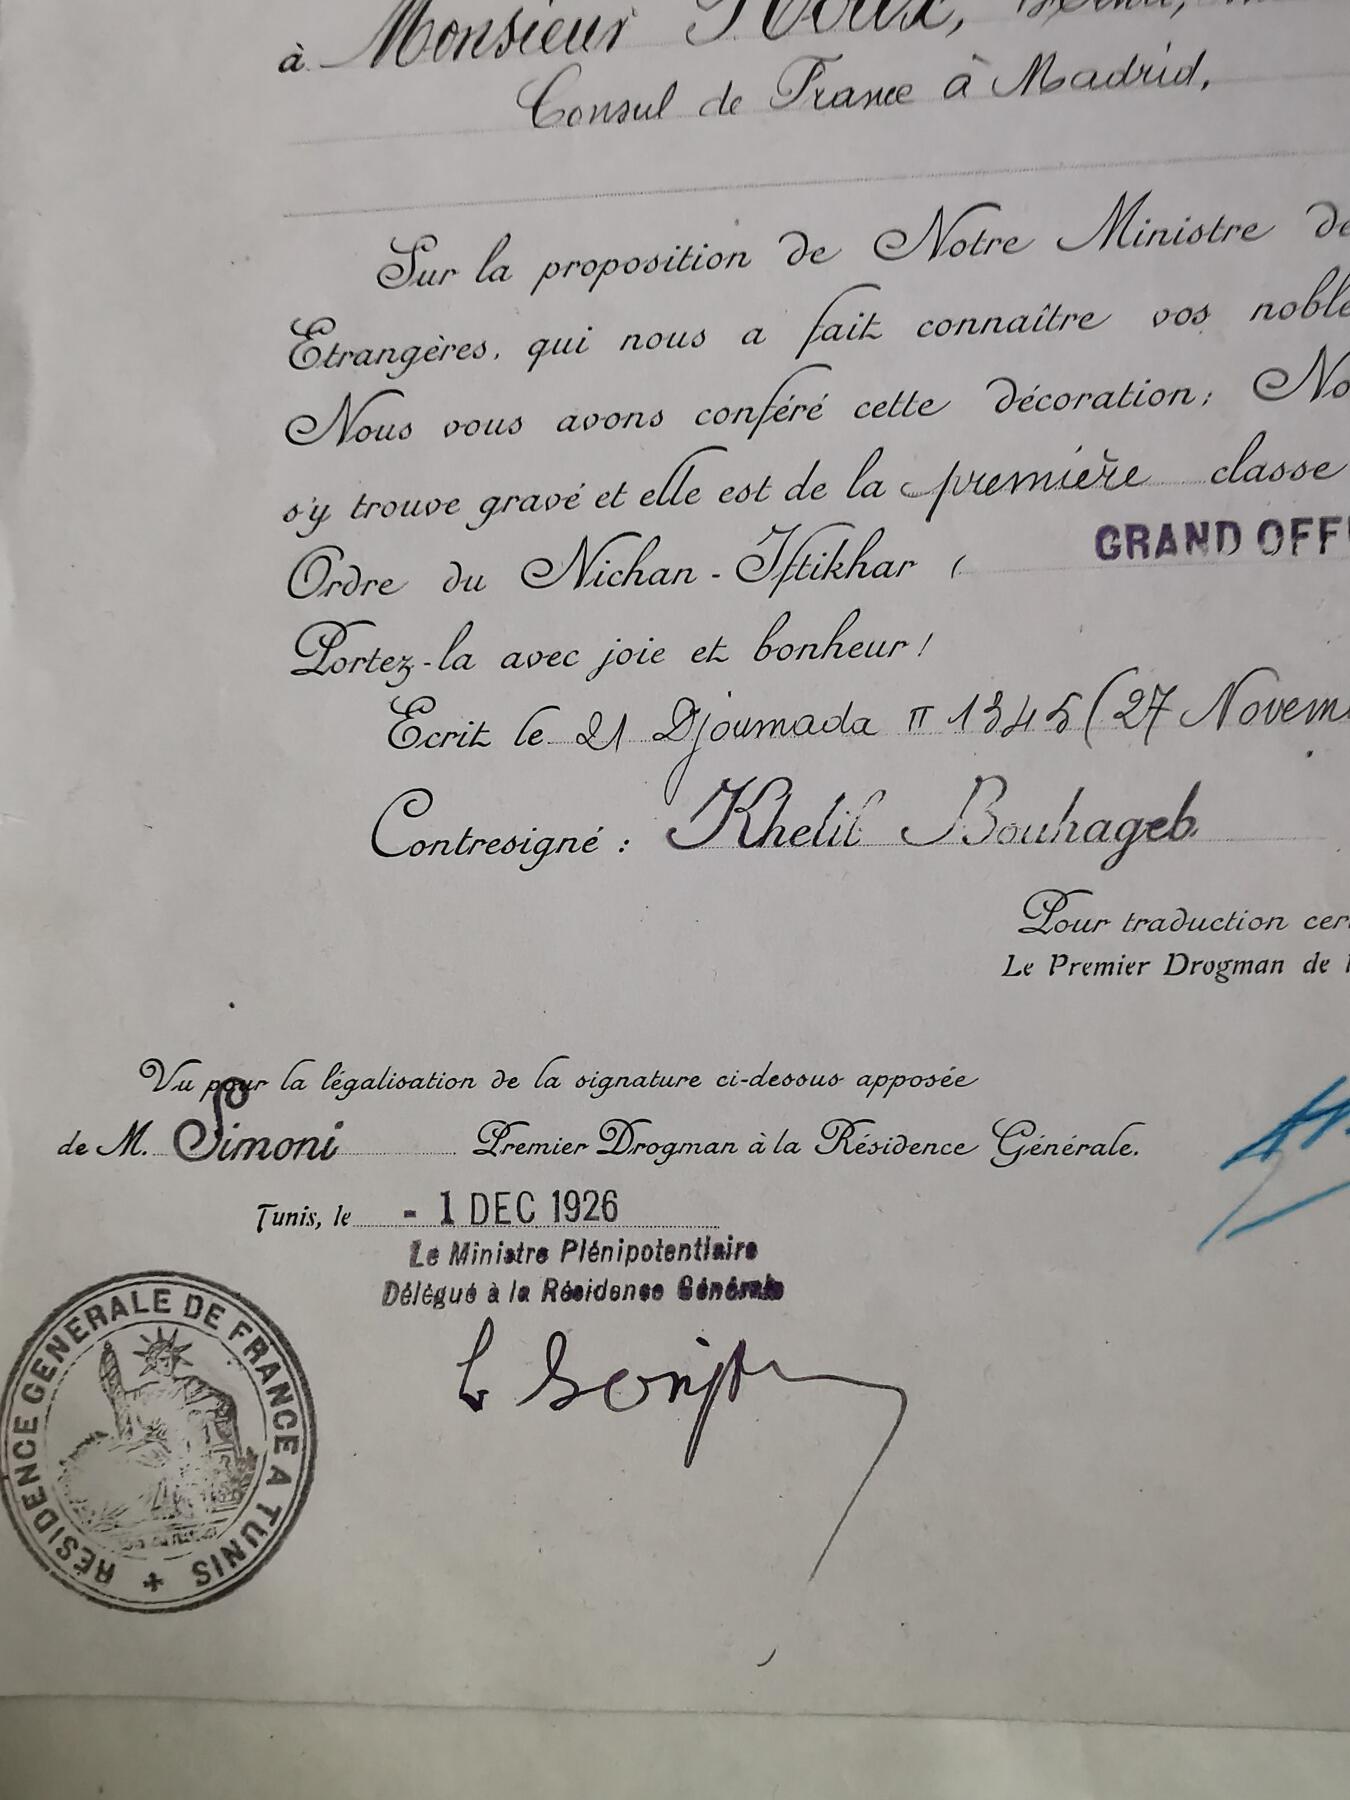 à Monsieur Roux,
Consul de France à Madrid,
Sur la proposition de Notre Ministre de
Etrangères, qui nous a fait connaître vos noble
Nous vous avons conféré cette décoration; No
s'y trouve gravé et elle est de la première classe
GRAND OFF
Ordre du Nichan-Iftikhar (
Portez-la avec joie et bonheur!
Ecrit le 21 Djoumada II 1345 (27 Novem
Contresigné: Khelil Bouhageb
Pour traduction cer
Le Premier Drogman de
Vu pour la légalisation de la signature ci-dessus apposée
de M. Simoni Premier Drogman à la Résidence Générale.
Tunis, le - 1 DEC 1926
Le Ministre Plénipotentiaire
Délégué à la Résidence Générale
RESIDENCE GENERALE DE FRANCE A TUNIS